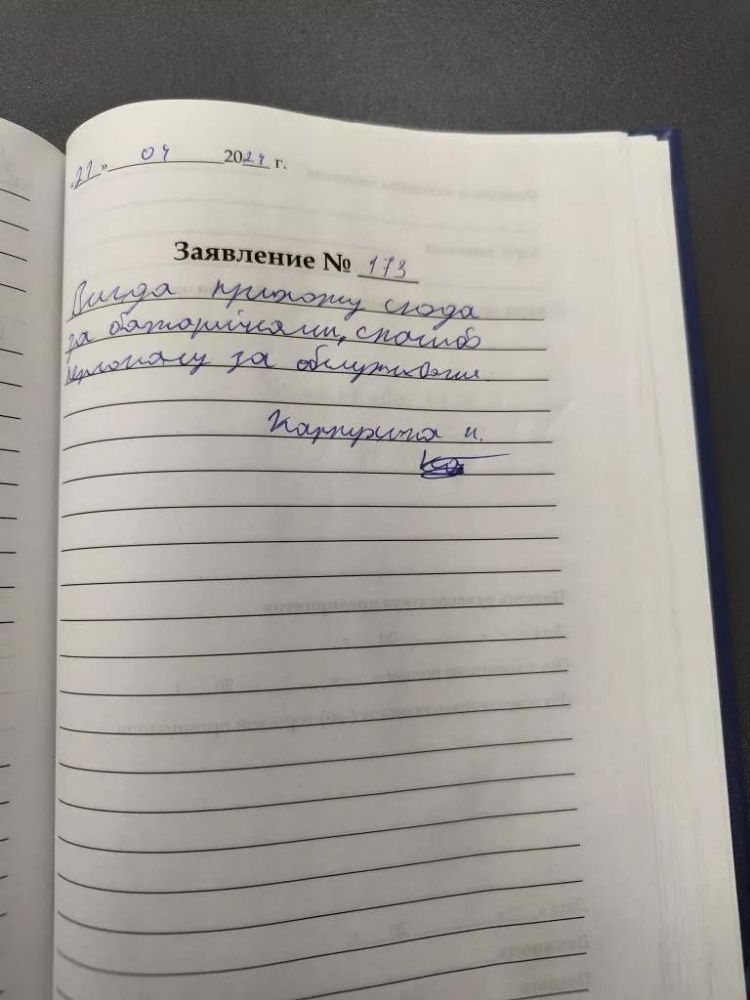 «21» 04 2024 г.
Заявление № 173
Всегда прихожу сюда
за батарейками, спасибо
персоналу за обслуживание.